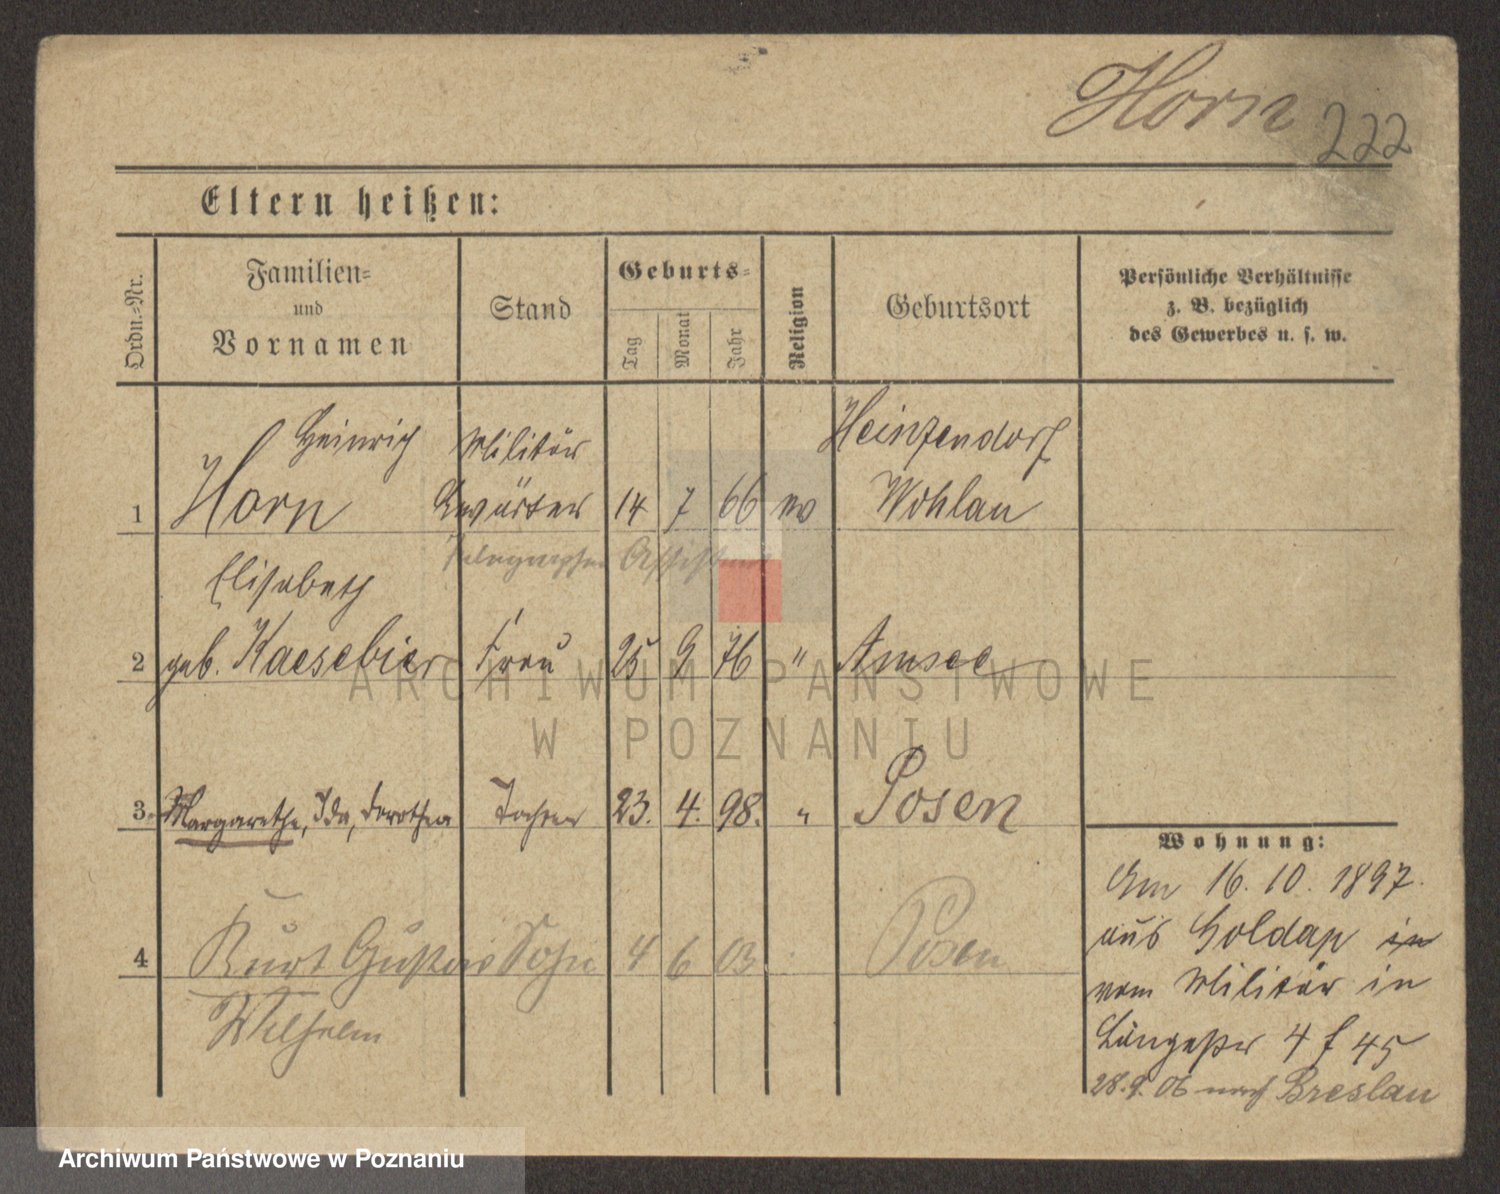 Horn 222
Eltern heißen:
Ordn.-Nr.
Familien-
und
Vornamen
Stand
Geburts-
Tag
Monat
Jahr
Religion
Geburtsort
Persönliche Verhältnisse
z. B. bezüglich
des Gewerbes u. s. w.
Heinrich Militär Heinzendorf
1 Horn Anwärter 14 7 66 ev Wohlau
Telegraphen Assistent
Elisabeth
2 geb. Kaesebier Frau 25 9 76 " Amsee
3 Margarethe, Ida, Dorothea Tochter 23. 4. 98. " Posen
4 Kurt Gustav Sohn 4 6 03 Posen
Wilhelm
Wohnung:
Am 16. 10. 1897.
aus Goldap in
vom Militär in
4 f 45
28.9.06 nach Breslau
ARCHIWUM PAŃSTWOWE
W POZNANIU
Archiwum Państwowe w Poznaniu